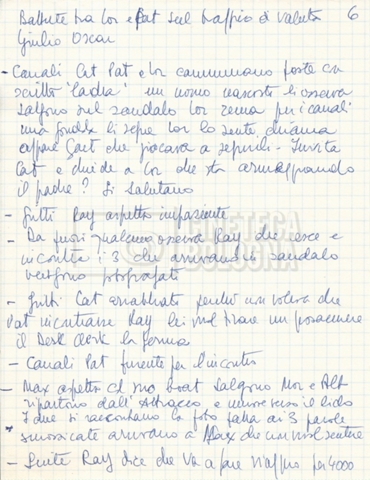 Battute tra Lor e Pat sul traffico di valuta 6
Giulio Oscar
- Canali Cat Pat e Lor camminano poste con
scritto "ladra" un uomo nascosto li osserva
Salgono sul sandalo Lor rema per i canali
una gondola li segue Lor lo sente chiama
appare che giocava a seguirli - Turista
Cat e chiede a Lor che sta
il padre? Si salutano
- Gritti Ray aspetta impaziente
- Da fuori qualcuno osserva Ray che esce e
incontra i 3 che arrivano in sandalo
vengono fotografati
- Gritti Cat arrabbiata perché non voleva che
Pat incontrasse Ray lei vuol tirare un posacenere
il Desk Clerk la ferma
- Canali Pat furente per l'incontro
- Max aspetta al suo boat Salgono Mor e Alt
ripartono dall'Attracco e verso il lido
I due si raccontano la foto fatta ai 3 parole
smozzicate arrivano a Max che non vuol sentire
- Suite Ray dice che va a fare viaggio per 4000
CINETECA
BOLOGNA